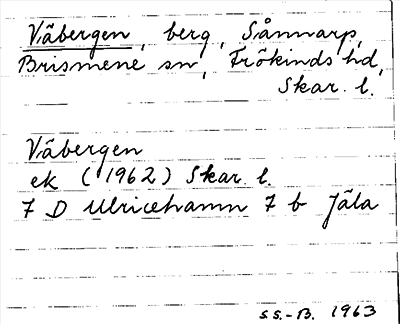 Våbergen, berg, Sånnarp,
Brismene sn, Frökinds hd,
Skar. l.
Våbergen
ek (1962) Skar. l.
7 D Ulricehamn 7 b Jäla
S.S.-B. 1963